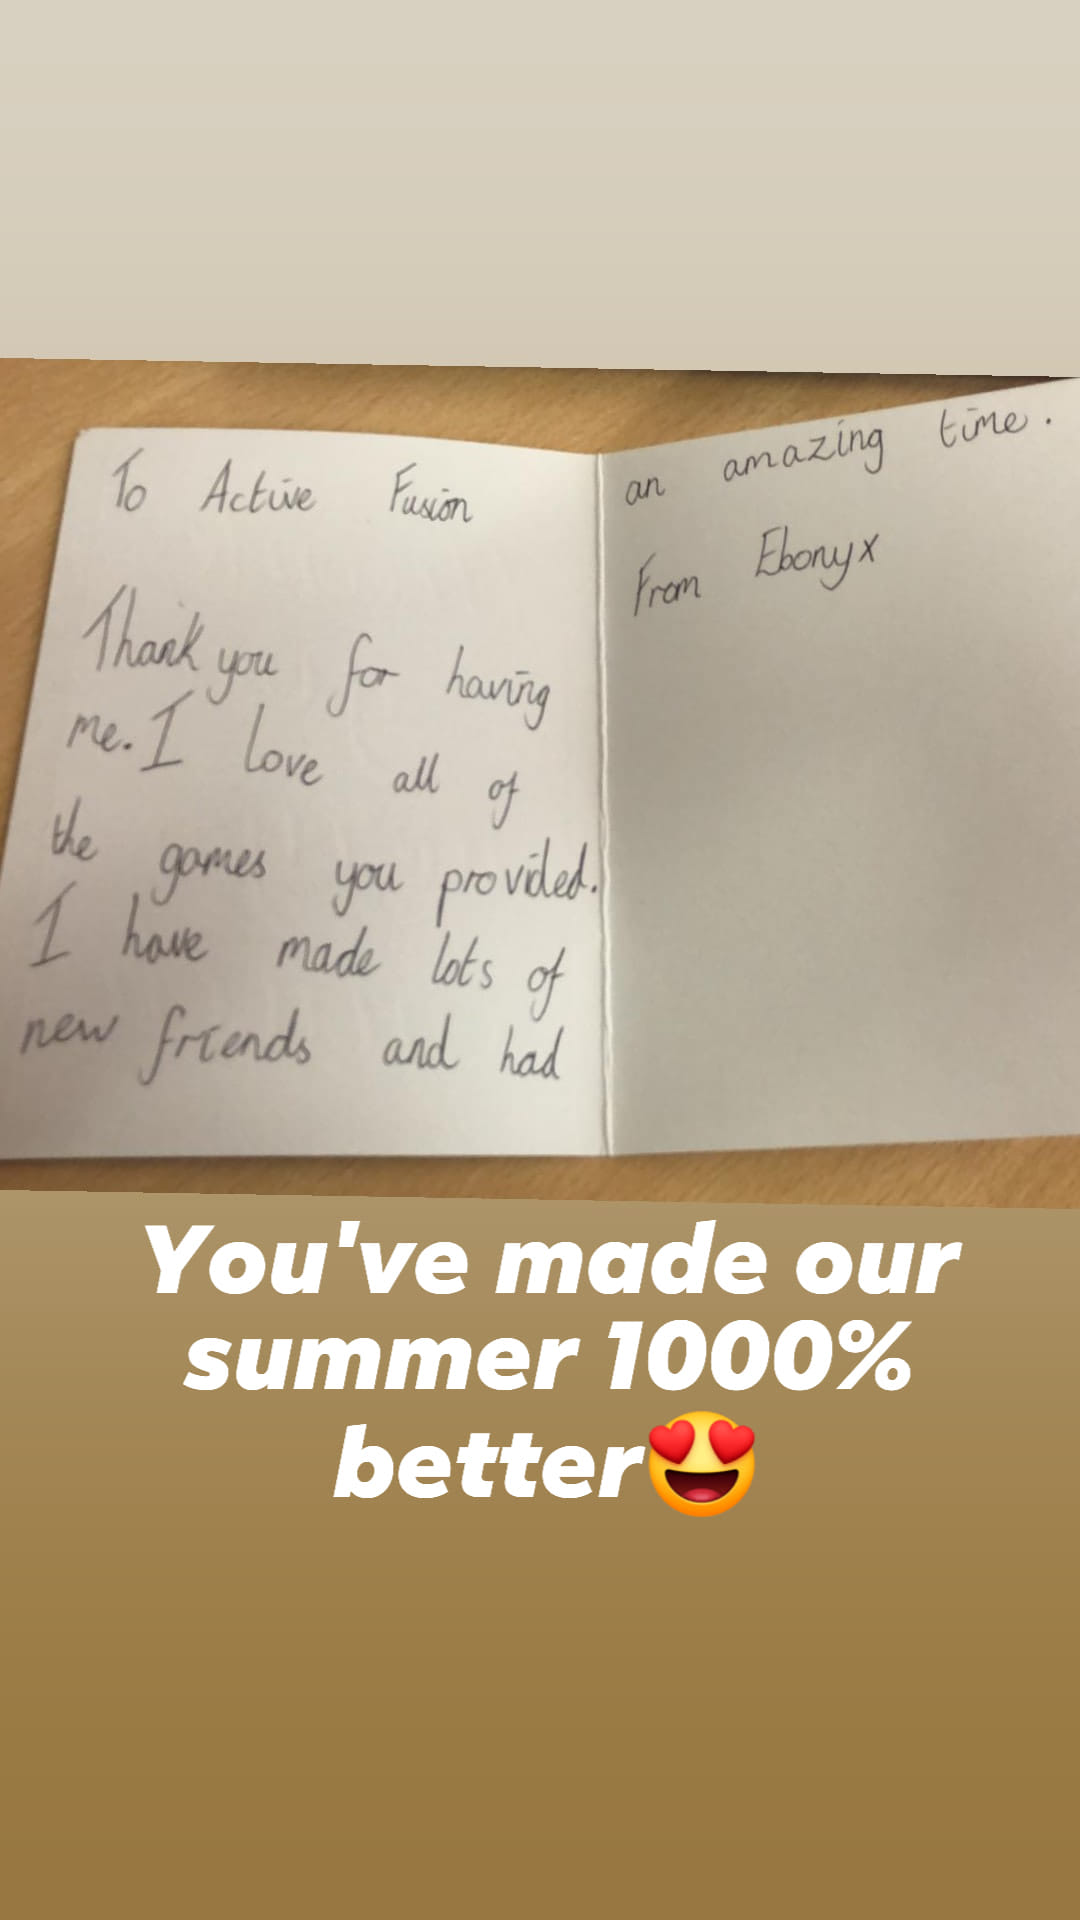 To Active Fusion
Thank you for having
me. I love all of
the games you provided.
I have made lots of
new friends and had
an amazing time.
From Ebony x
You've made our
summer 1000%
better😍